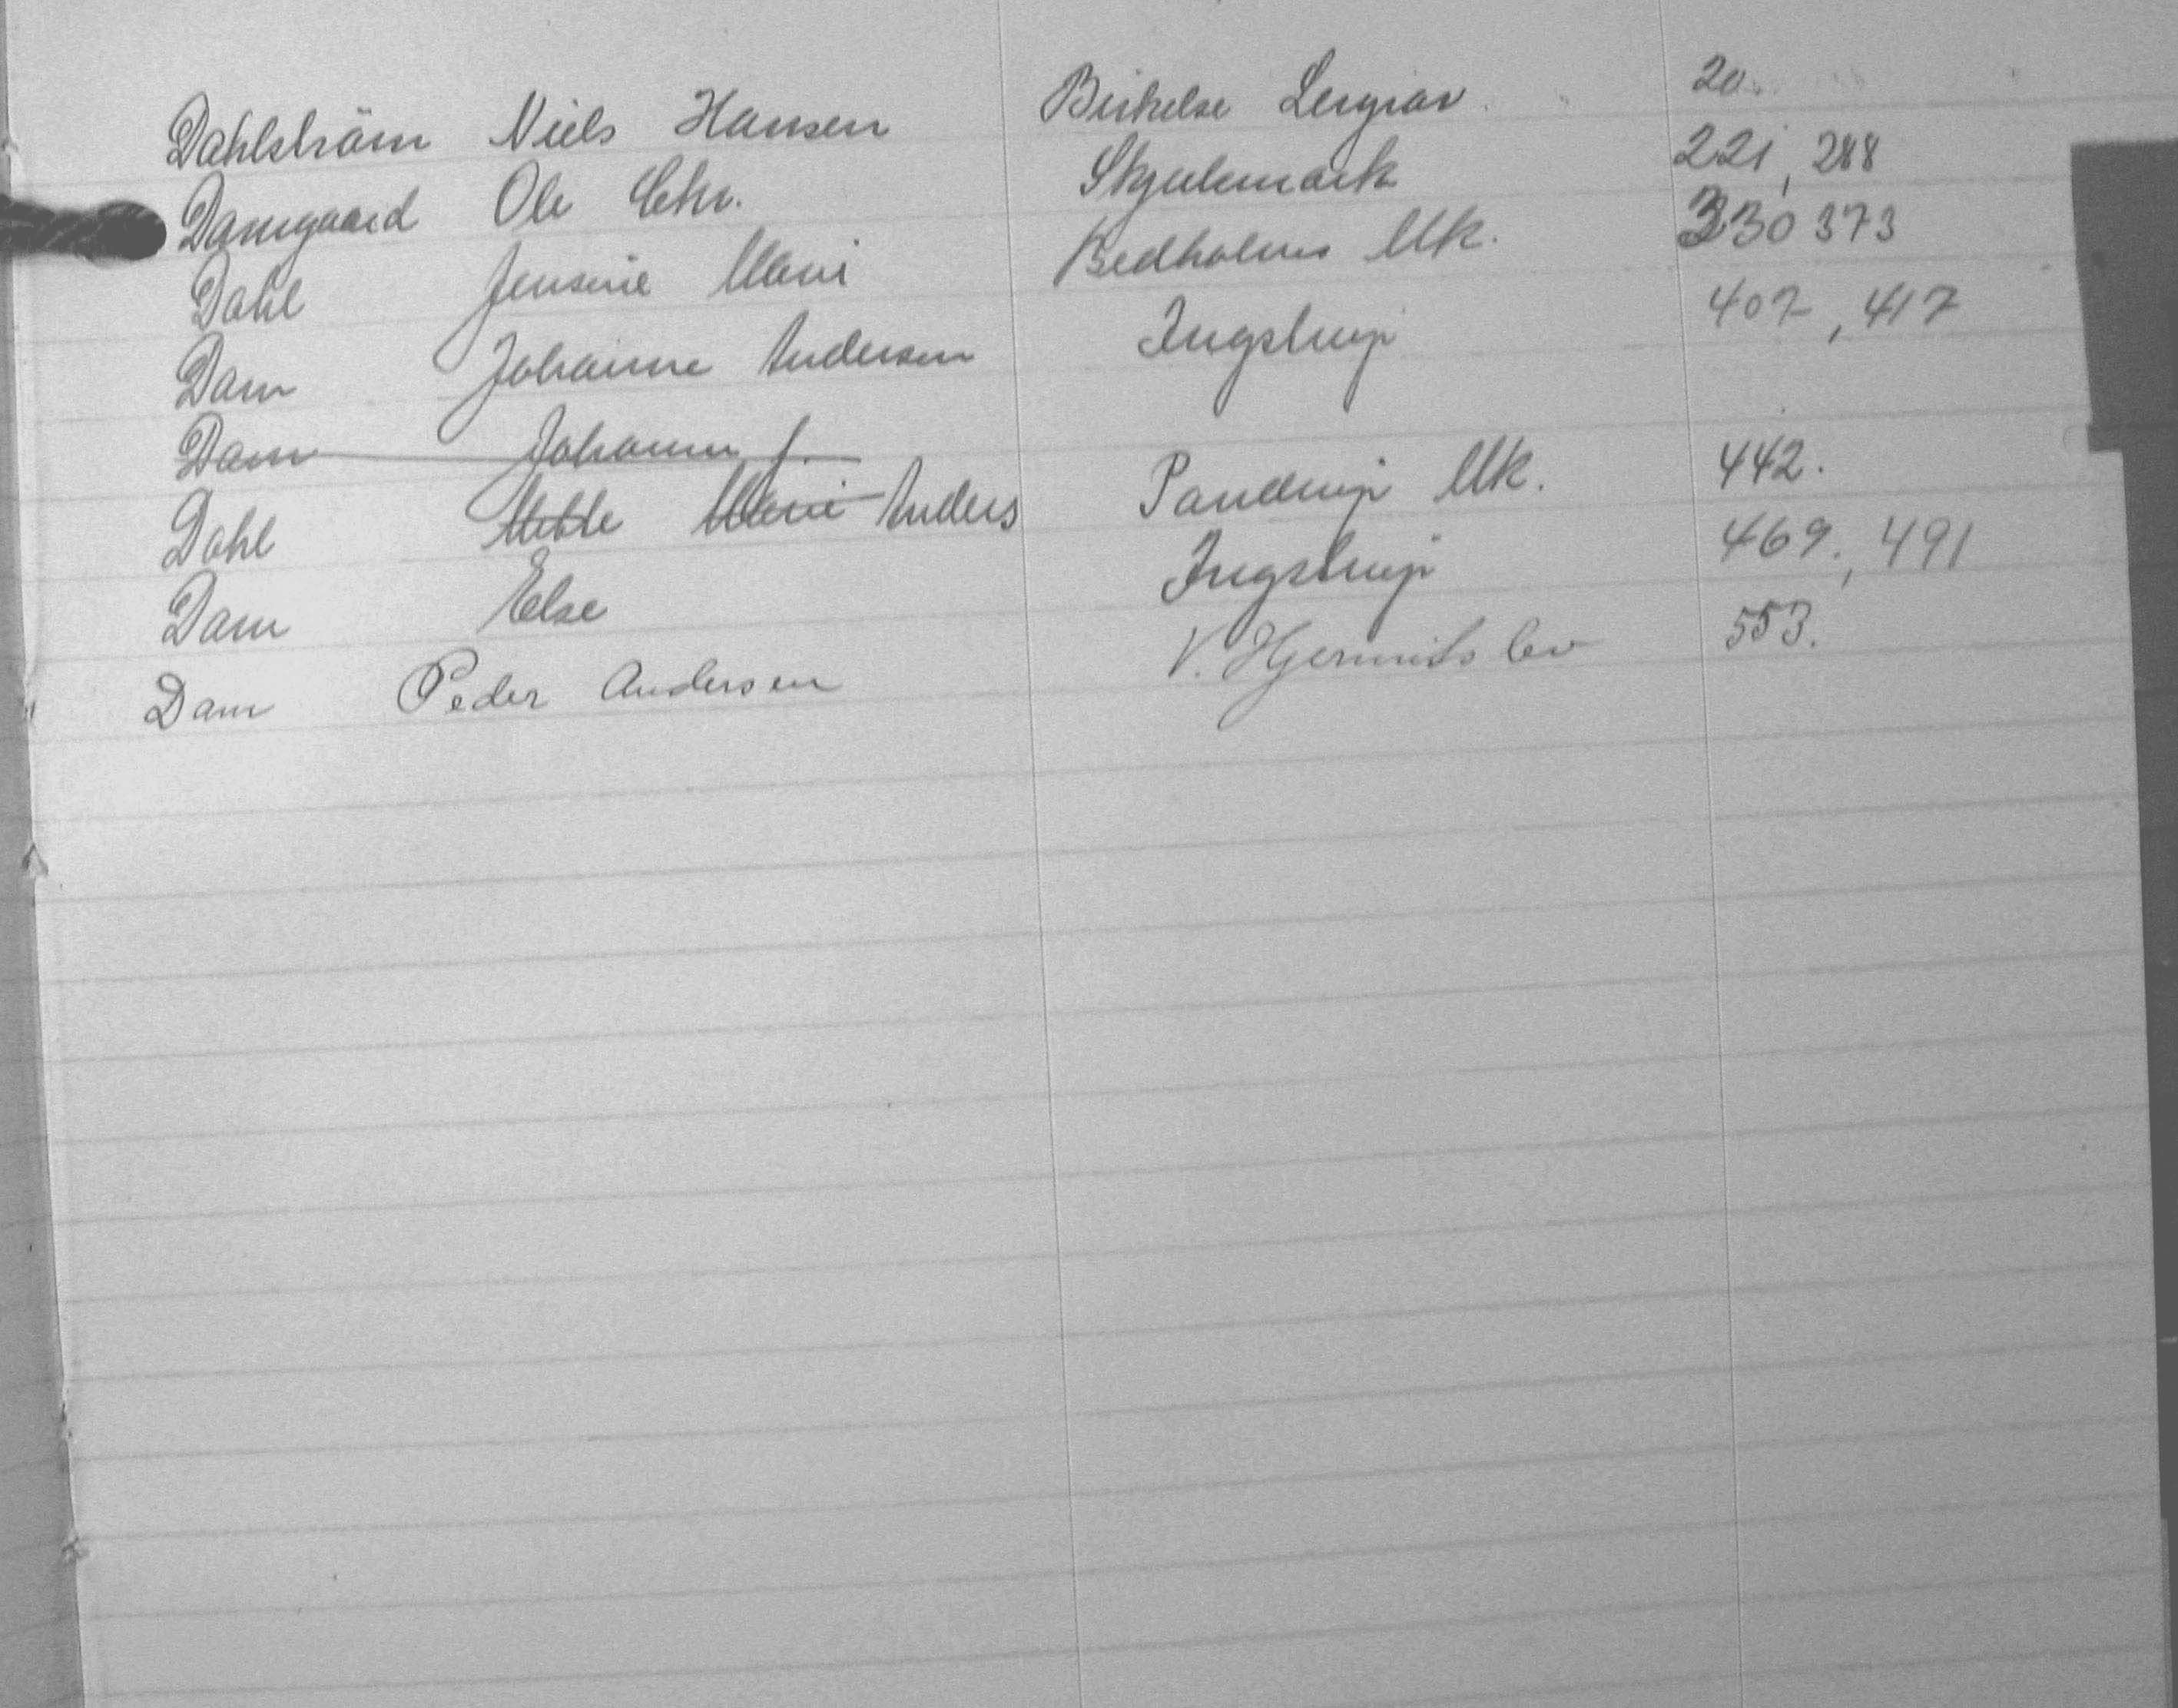 Dahlström Niels Hansen Birkelse Lergrav. 20.
Damgaard Ole Chr. Skjulemark 221, 288
Dahl Jensine Marie Bedholms Mk. 330 373
Dam Johanne Andersen Ingstrup 407, 417
Dam Johanne J.
Dahl Mette Marie Anders Pandrup Mk. 442.
Dam Else Ingstrup 469., 491
Dam Peder Andersen V. Hjermitslev 553.